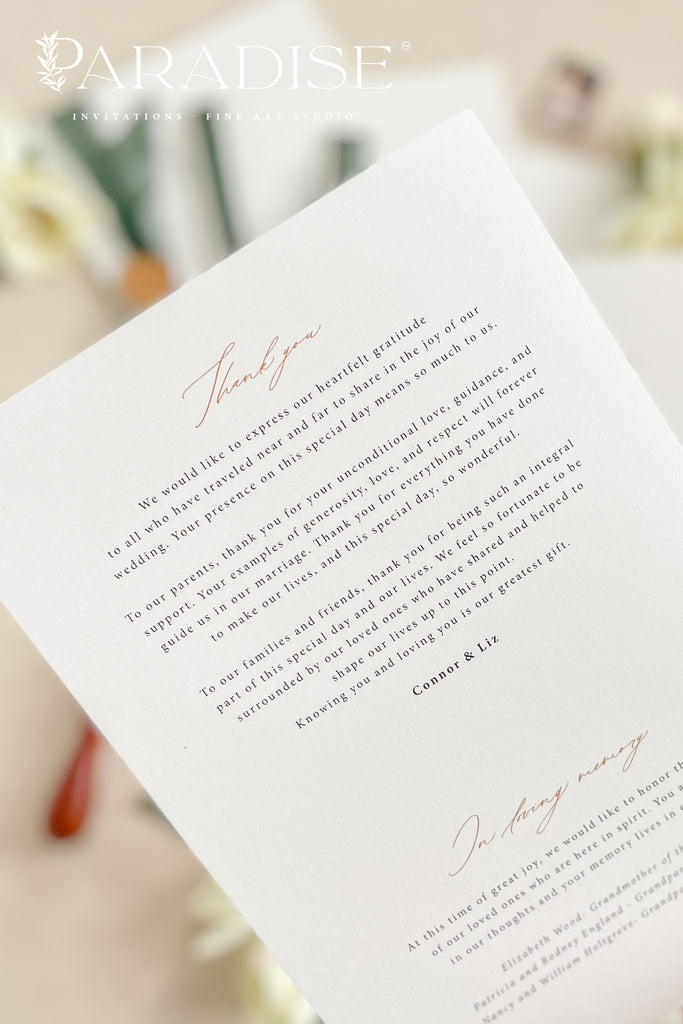 PARADISE
INVITATIONS · FINE ART STUDIO
Thank you
We would like to express our heartfelt gratitude
to all who have traveled near and far to share in the joy of our
wedding. Your presence on this special day means so much to us.
To our parents, thank you for your unconditional love, guidance, and
support. Your examples of generosity, love, and respect will forever
guide us in our marriage. Thank you for everything you have done
to make our lives, and this special day, so wonderful.
To our families and friends, thank you for being such an integral
part of this special day and our lives. We feel so fortunate to be
surrounded by our loved ones who have shared and helped to
shape our lives up to this point.
Knowing you and loving you is our greatest gift.
Connor & Liz
In loving memory
At this time of great joy, we would like to honor
of our loved ones who are here in spirit. You
in our thoughts and your memory lives in
Elizabeth Wood- Grandmother of
Patricia and Rodney England -
Nancy and William Holtgreve-